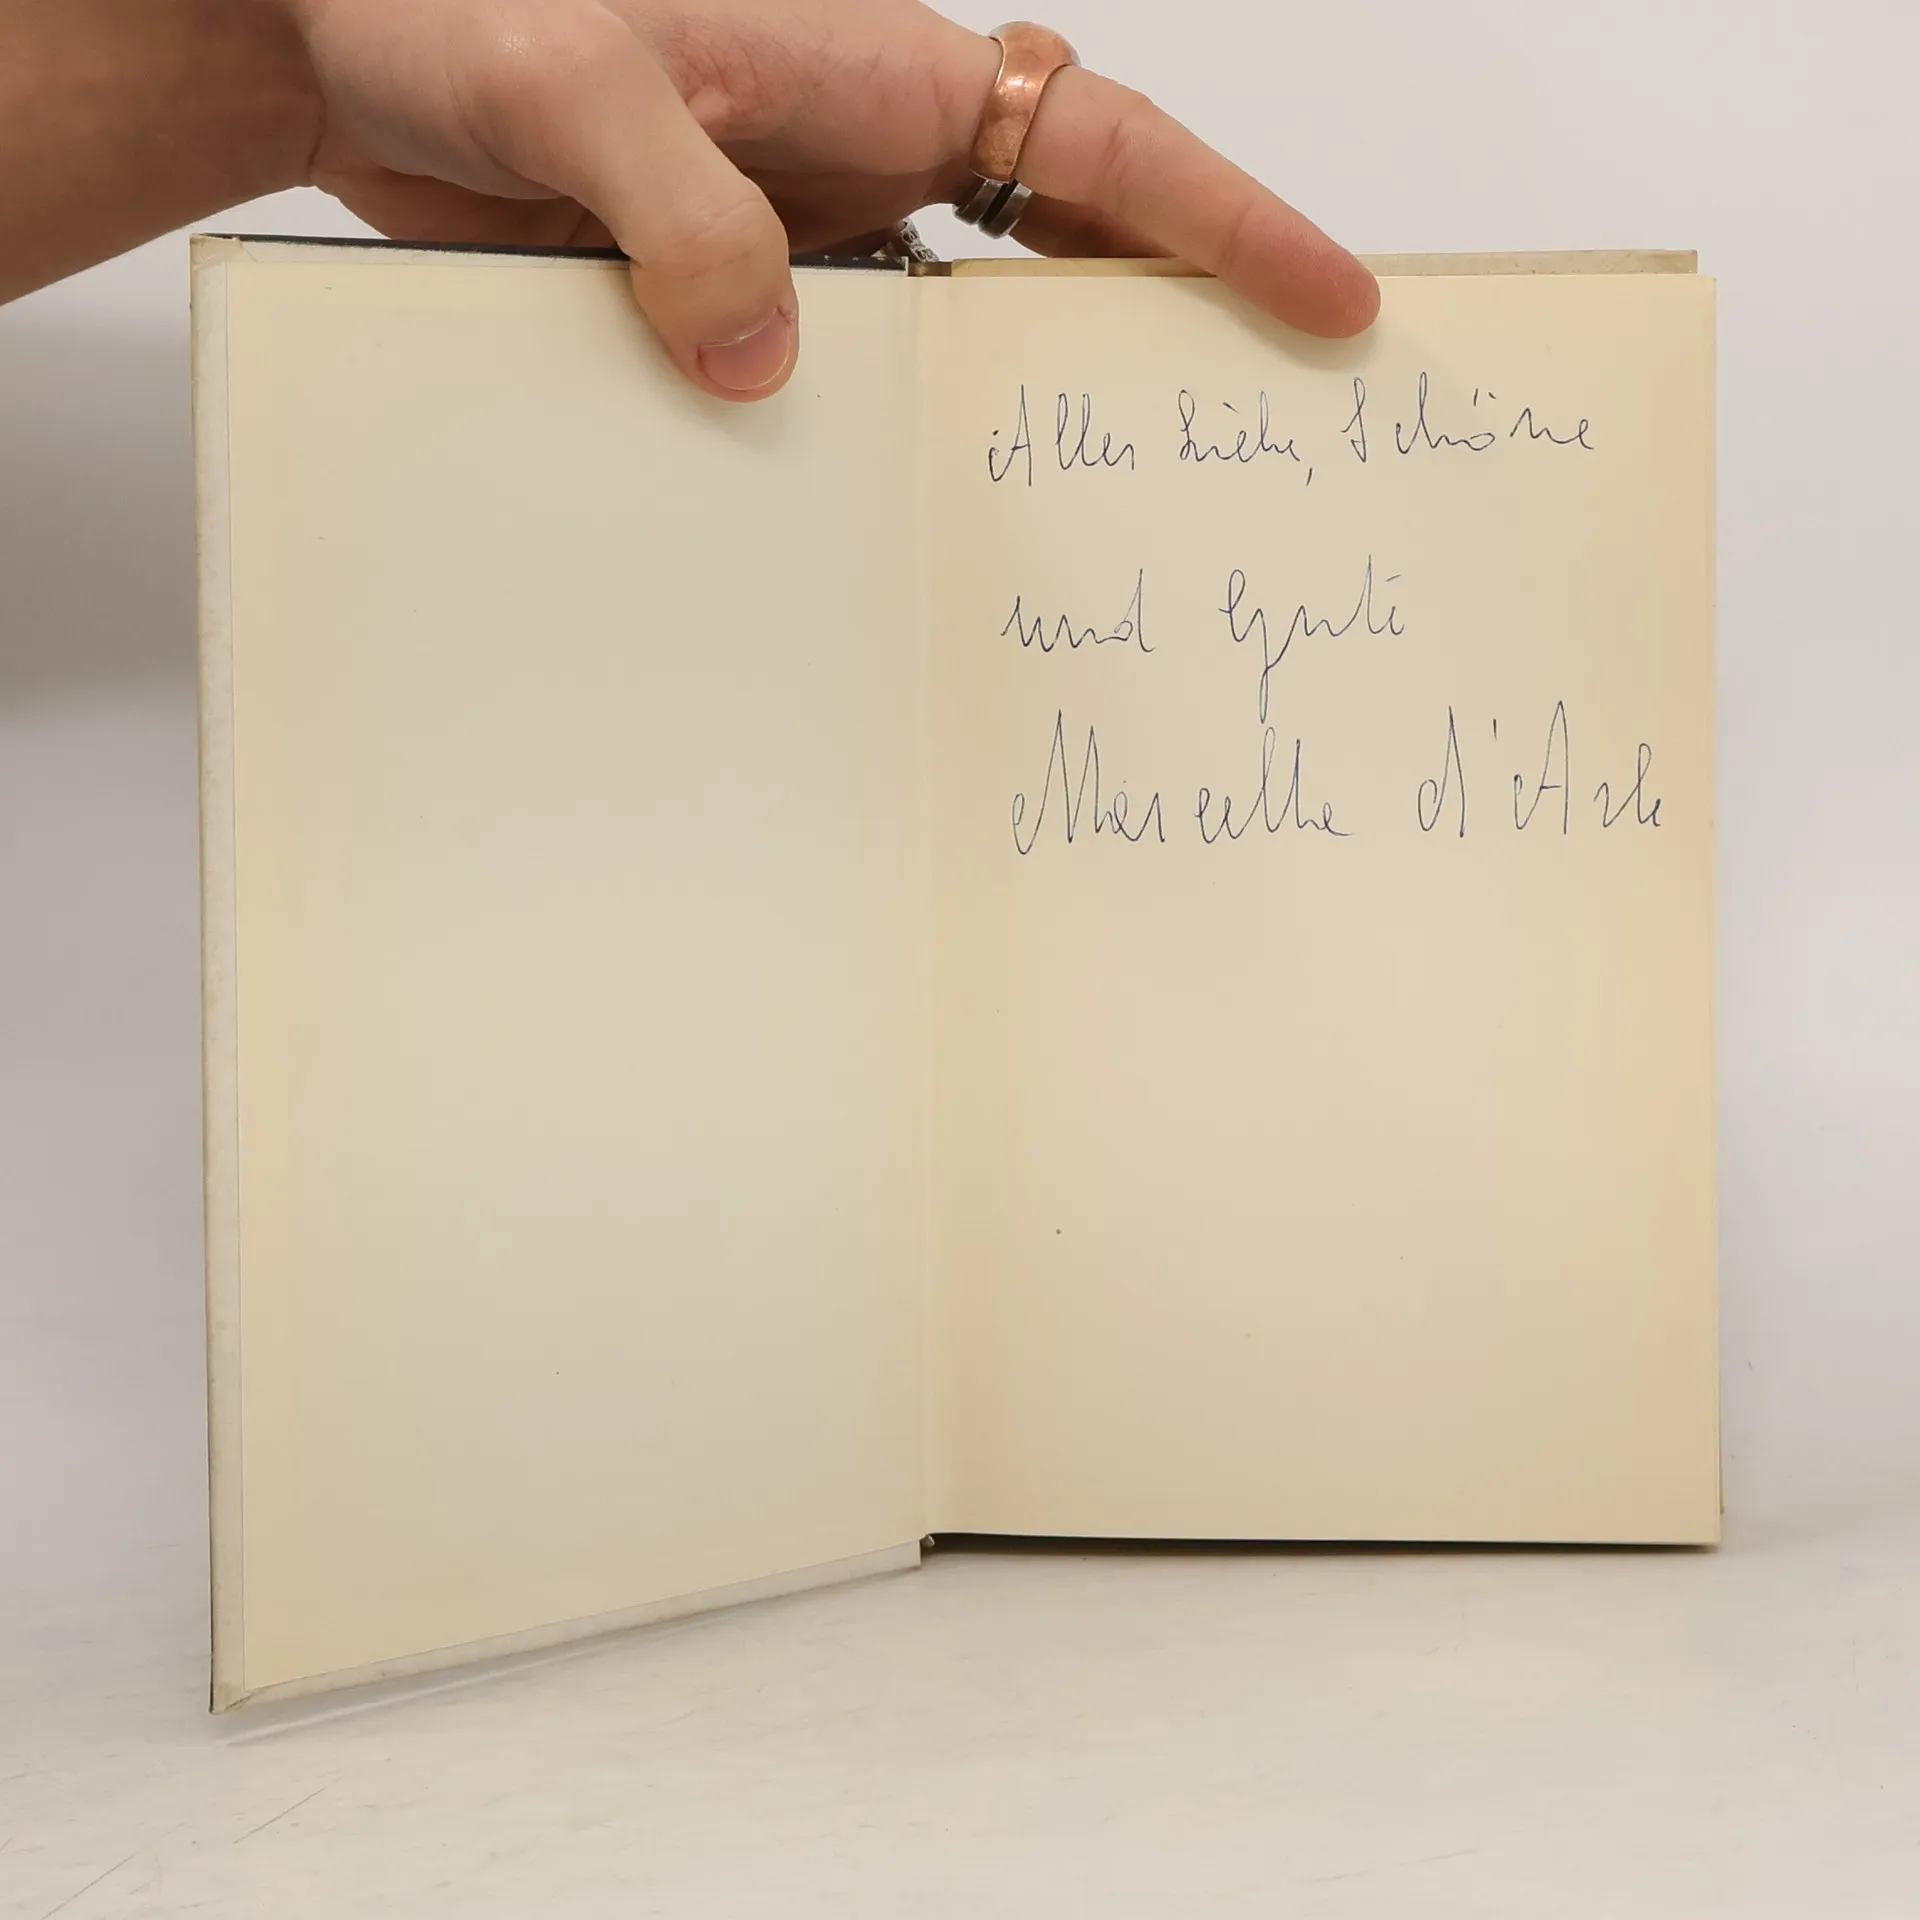 Alles Liebe, Schöne
und Gute
Marcelle d'Arle